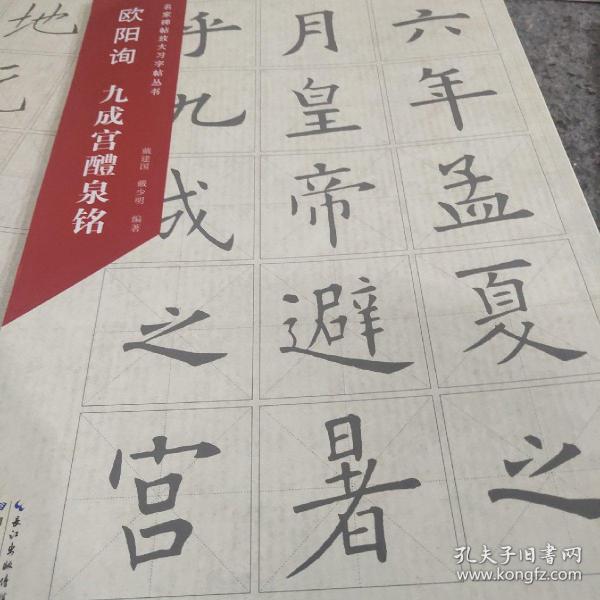 名家碑帖放大习字帖丛书
欧阳询 九成宫醴泉铭
戴建国 戴少明 编著
六年孟夏之
月皇帝避暑
乎九成之宫
地
长江出版传媒
孔夫子旧书网
www.kongfz.com